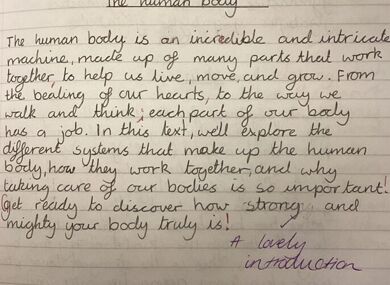 The human body
The human body is an incredible and intricate
machine, made up of many parts that work
together, to help us live, move, and grow. From
the beating of our hearts, to the way we
walk and think; each part of our body
has a job. In this text, we'll explore the
different systems that make up the human
body, how they work together, and why
taking care of our bodies is so important!
Get ready to discover how strong and
mighty your body truly is!
A lovely
introduction